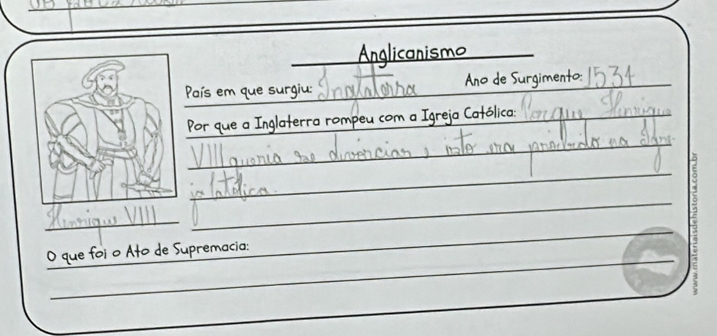 Anglicanismo
País em que surgiu: Inglaterra Ano de Surgimento: 1534
Por que a Inglaterra rompeu com a Igreja Católica: Porque Henrique
VIII queria se divorciar e isto era proibido na Igre-
ja Católica.
Henrique VIII
O que foi o Ato de Supremacia:
www.materiaisdehistoria.com.br